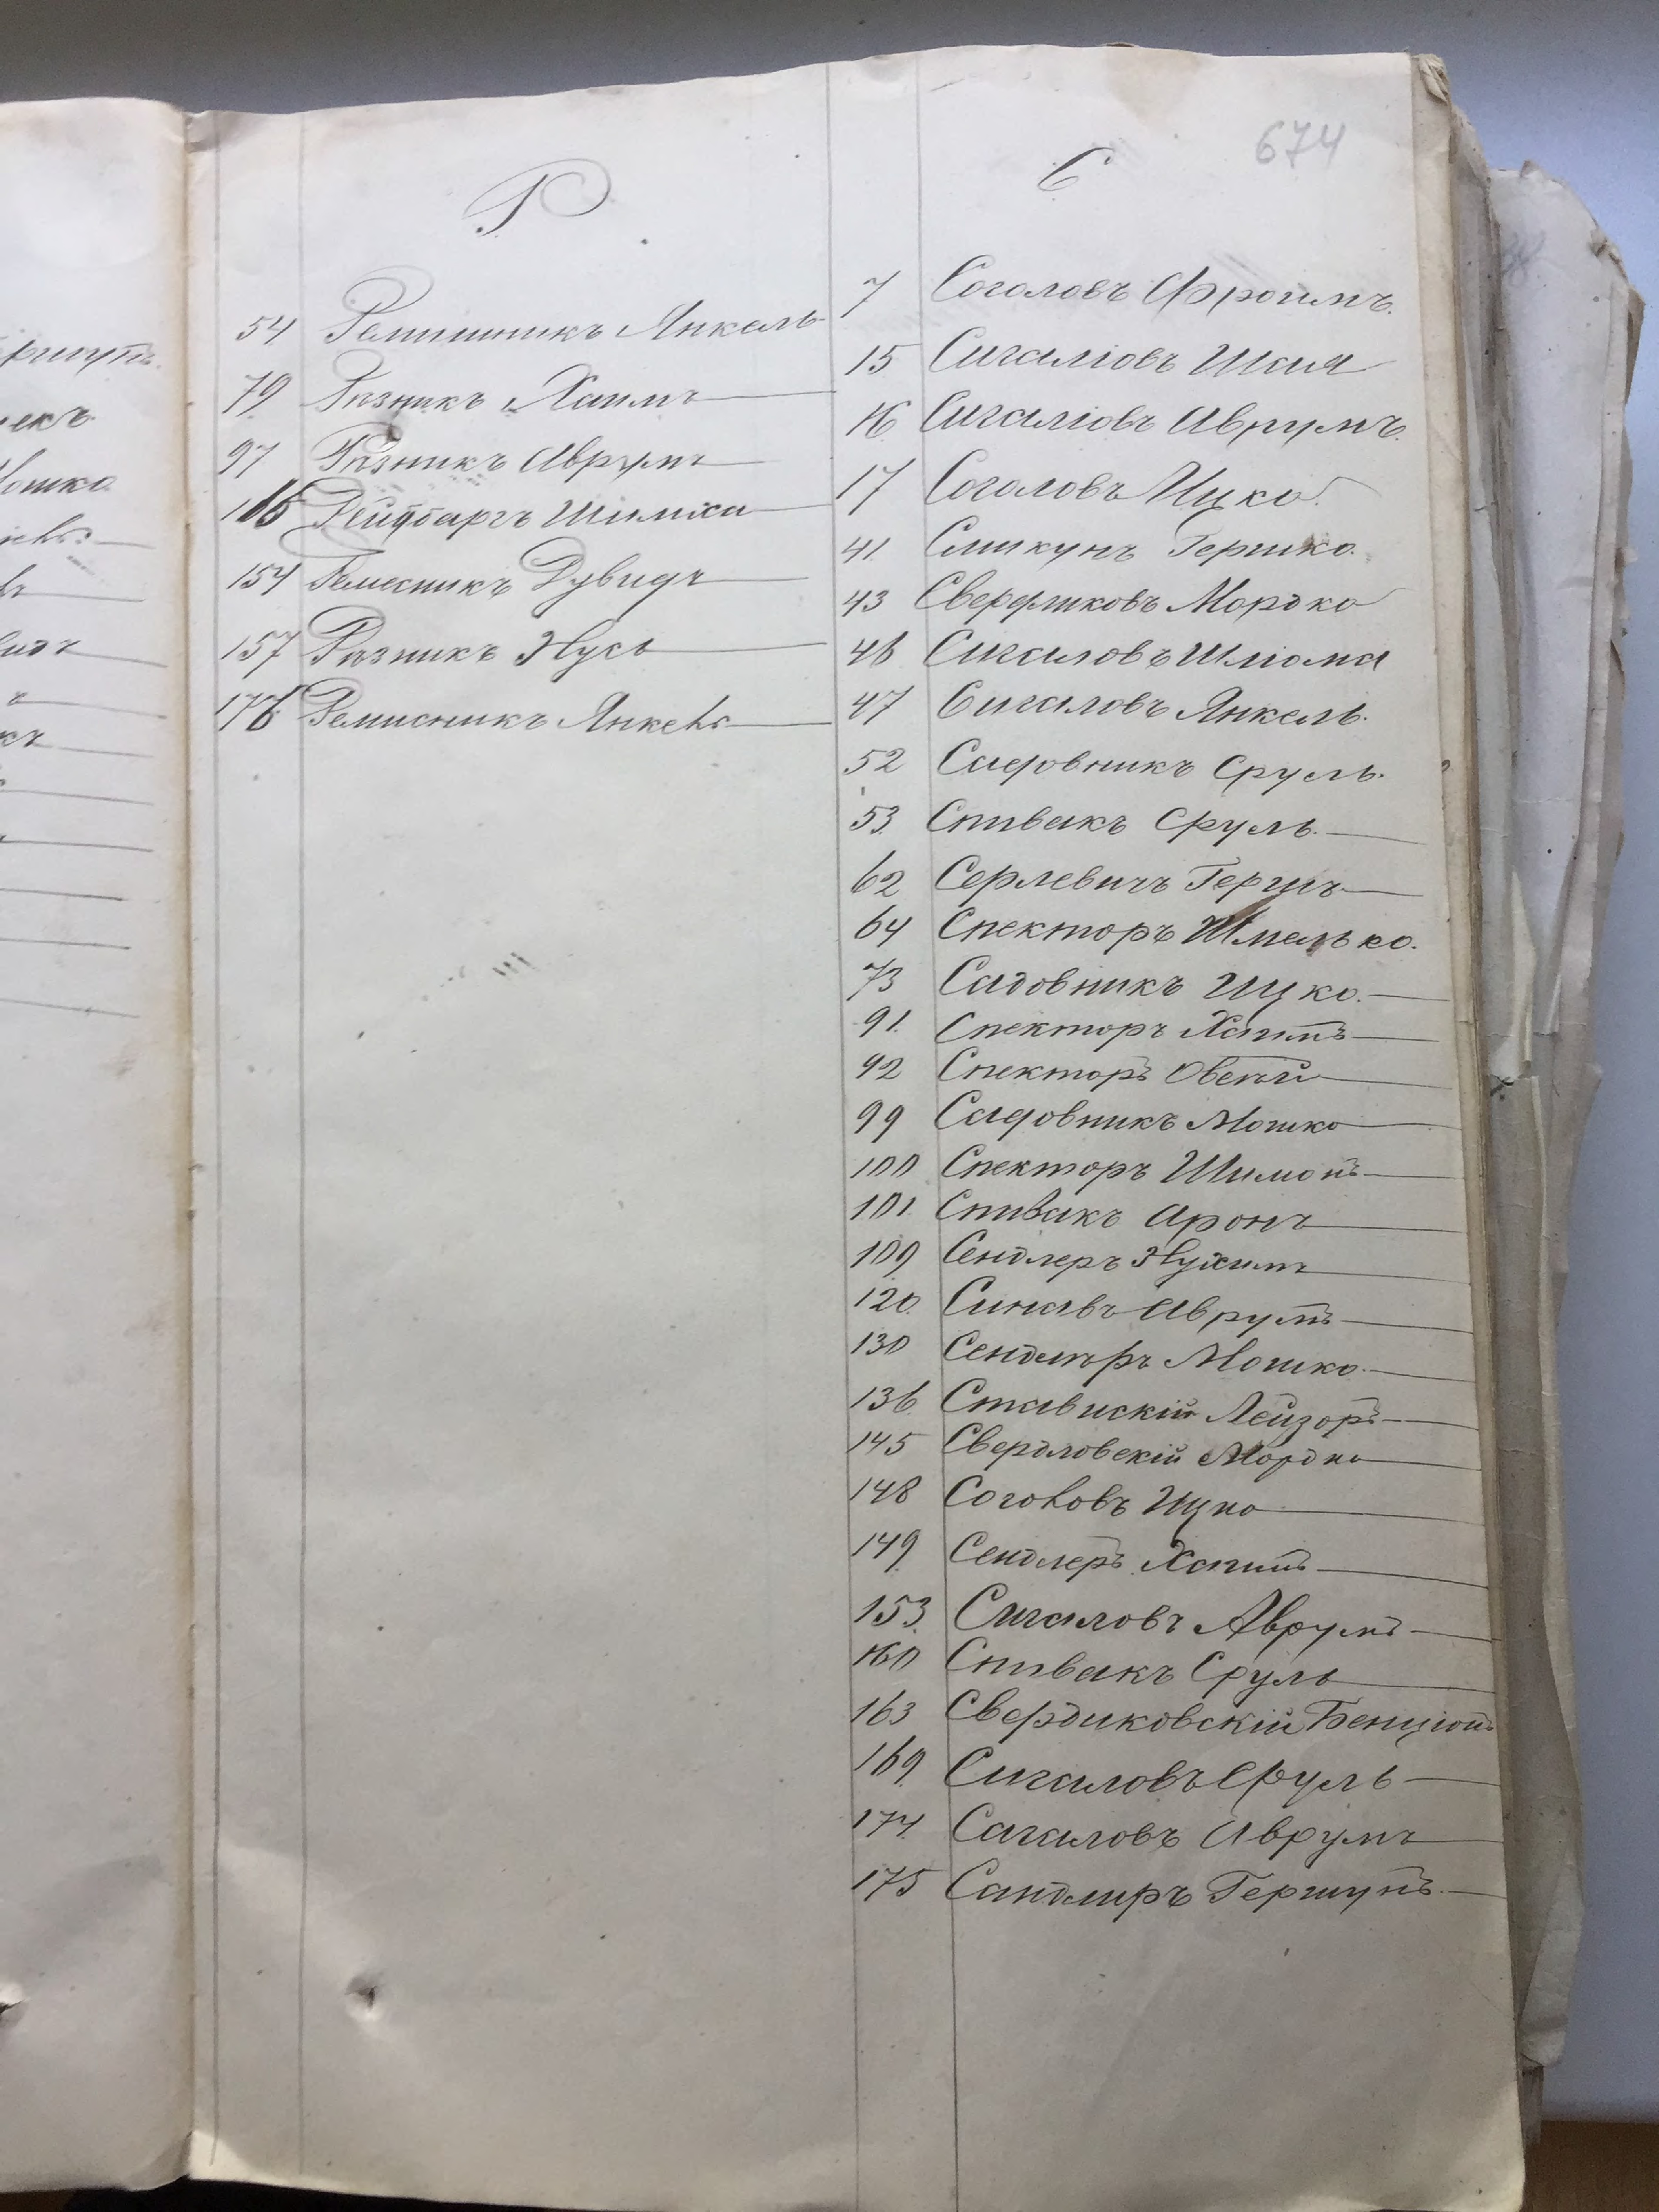 674
Р
54 Ремишникъ Янкель
79 Рѣзникъ Хаимъ
97 Рѣзникъ Аврумъ
116 Рейдбаргъ
154 Ремесникъ Дувидъ
157 Рѣзникъ Нусь
176 Ремисникъ Янкель
С
7 Соголовъ Фроимъ.
15 Сигаловъ Шая
16 Сигаловъ Аврумъ.
17 Соголовъ Ицко.
41. Сликунъ Гершко.
43 Свердликовъ Мордко
46 Сигаловъ Шлиома
47 Сигаловъ Янкель.
52 Садовникъ Сруль.
53. Спивакъ Сруль.
62 Серлевичъ Гершъ
64 Спекторъ Шмелько.
73 Садовникъ Ицко.
91. Спекторъ Хаимъ
92 Спекторъ Овсѣй
99 Садовникъ Мошко
100 Спекторъ Шимонъ
101. Спивакъ Аронъ
109 Сендлеръ Нухимъ
120. Синавъ Аврумъ
130 Сендлѣръ Мошко.
136 Ставискій Лейзоръ
145 Свердловскій Мордко
148 Соголовъ Ицко
149. Сендлеръ Хаимъ
153. Сигаловъ Аврумъ
160 Спивакъ Сруль
163 Свердиковскій Бенціонъ
169. Сигаловъ Сруль
174. Сагаловъ Аврумъ
175 Сандлиръ Гершунъ.
ошко